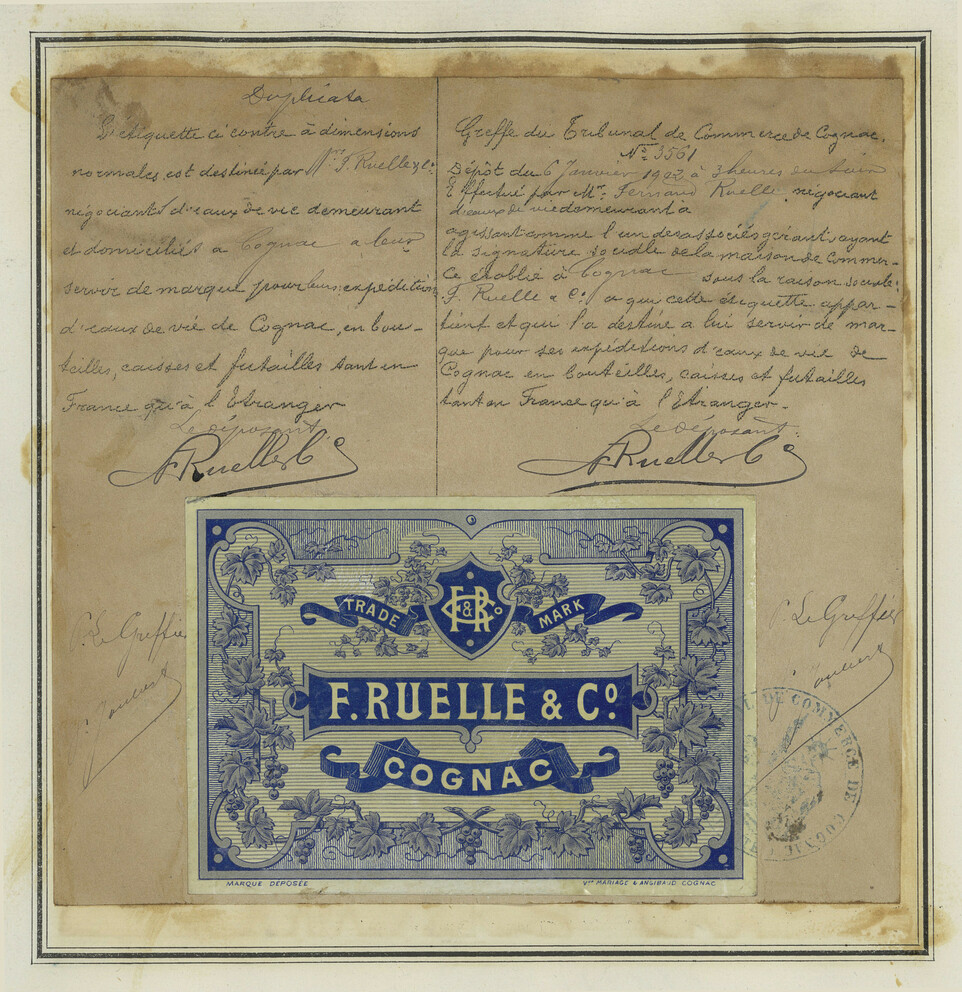 Duplicata
L'étiquette ci contre à dimensions
normales est destinée par Mrs F. Ruelle & Co.
négociants d'eaux de vie demeurant
et domiciliés a Cognac a leur
servir de marque pour leurs expéditions
d'eaux de vie de Cognac, en bou-
teilles, caisses et futailles tant en
France qu'à l'Etranger
Le déposant.
F Ruelle & Co
Greffe du Tribunal de Commerce de Cognac.
No 3561
Dépôt du 6 Janvier 1902 à 3 heures du soir
Effectué par Mr. Fernand Ruelle négociant
d'eaux de vie demeurant à
agissant comme l'un des associés gérant, ayant
la signature sociale de la maison de commer-
ce établie à Cognac sous la raison sociale:
F. Ruelle & Co. a qui cette étiquette appar-
tient et qui l'a destiné a lui servir de mar-
que pour ses expéditions d'eaux de vie de
Cognac en bouteilles, caisses et futailles
tant en France qu'à l'Etranger.
Le déposant.
F Ruelle & Co
Le Greffier
Le Greffier
TRADE
F & R Co
MARK
F. RUELLE & Co.
COGNAC
MARQUE DÉPOSÉE
Vve MARIAGE & ANGIBAUD COGNAC
AL DE COMMERCE DE COGNAC